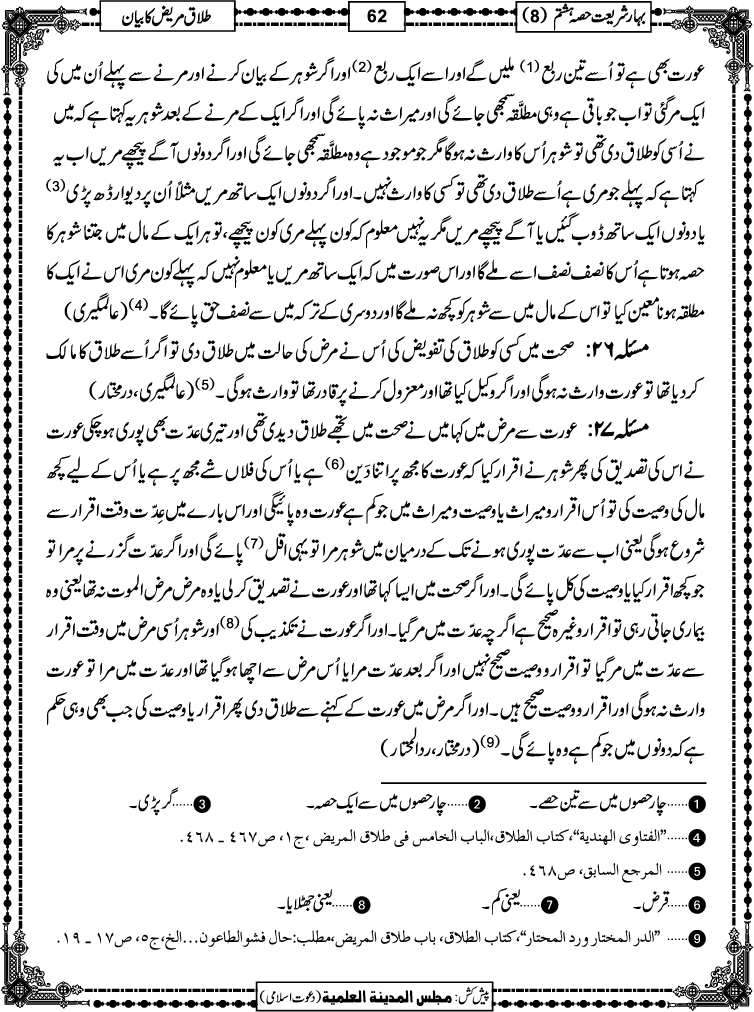 بہارشریعت حصہ ہشتم (8)
62
طلاق مریض کا بیان
عورت بھی ہے تو اُسے تین ربع (1) ملیں گے اور اسے ایک ربع (2) اور اگر شوہر کے بیان کرنے اور مرنے سے پہلے اُن میں کی
ایک مرگئی تو اب جو باقی ہے وہی مطلَّقہ سمجھی جائے گی اور میراث نہ پائے گی اور اگر ایک کے مرنے کے بعد شوہر یہ کہتا ہے کہ میں
نے اُسی کو طلاق دی تھی تو شوہر اُس کا وارث نہ ہوگا مگر جو موجود ہے وہ مطلَّقہ سمجھی جائے گی اور اگر دونوں آگے پیچھے مریں اب یہ
کہتا ہے کہ پہلے جو مری ہے اُسے طلاق دی تھی تو کسی کا وارث نہیں۔ اور اگر دونوں ایک ساتھ مریں مثلاً اُن پر دیوار ڈھ پڑی (3)
یا دونوں ایک ساتھ ڈوب گئیں یا آگے پیچھے مریں مگر یہ نہیں معلوم کہ کون پہلے مری کون پیچھے، تو ہر ایک کے مال میں جتنا شوہر کا
حصہ ہوتا ہے اُس کا نصف نصف اسے ملے گا اور اس صورت میں کہ ایک ساتھ مریں یا معلوم نہیں کہ پہلے کون مری اس نے ایک کا
مطلقہ ہونا معین کیا تو اس کے مال میں سے شوہر کو کچھ نہ ملے گا اور دوسری کے ترکہ میں سے نصف حق پائے گا۔ (4) (عالمگیری)
مسئلہ ۲۶: صحت میں کسی کو طلاق کی تفویض کی اُس نے مرض کی حالت میں طلاق دی تو اگر اُسے طلاق کا مالک
کردیا تھا تو عورت وارث نہ ہوگی اور اگر وکیل کیا تھا اور معزول کرنے پر قادر تھا تو وارث ہوگی۔ (5) (عالمگیری، درمختار)
مسئلہ ۲۷: عورت سے مرض میں کہا میں نے صحت میں تجھے طلاق دیدی تھی اور تیری عدّت بھی پوری ہوچکی عورت
نے اس کی تصدیق کی پھر شوہر نے اقرار کیا کہ عورت کا مجھ پر اتنا دَین (6) ہے یا اُس کی فلاں شے مجھ پر ہے یا اُس کے لیے کچھ
مال کی وصیت کی تو اُس اقرار و میراث یا وصیت و میراث میں جو کم ہے عورت وہ پائیگی اور اس بارے میں عِدّت وقت اقرار سے
شروع ہوگی یعنی اب سے عدّت پوری ہونے تک کے درمیان میں شوہر مرا تو یہی اقل (7) پائے گی اور اگر عدّت گزرنے پر مرا تو
جو کچھ اقرار کیا یا وصیت کی کل پائے گی۔ اور اگر صحت میں ایسا کہا تھا اور عورت نے تصدیق کرلی یا وہ مرض مرض الموت نہ تھا یعنی وہ
بیماری جاتی رہی تو اقرار وغیرہ صحیح ہے اگرچہ عدّت میں مرگیا۔ اور اگر عورت نے تکذیب کی (8) اور شوہر اُسی مرض میں وقت اقرار
سے عدّت میں مرگیا تو اقرار و وصیت صحیح نہیں اور اگر بعد عدّت مرا یا اُس مرض سے اچھا ہوگیا تھا اور عدّت میں مرا تو عورت
وارث نہ ہوگی اور اقرار و وصیت صحیح ہیں۔ اور اگر مرض میں عورت کے کہنے سے طلاق دی پھر اقرار یا وصیت کی جب بھی وہی حکم
ہے کہ دونوں میں جو کم ہے وہ پائے گی۔ (9) (درمختار، ردالمحتار)
1 ......چار حصوں میں سے تین حصے۔ 2 ......چار حصوں میں سے ایک حصہ۔ 3 ......گر پڑی۔
4 ......”الفتاوی الهندية“، کتاب الطلاق، الباب الخامس فی طلاق المريض، ج۱، ص۴۶۷ ـ ۴۶۸.
5 ...... المرجع السابق، ص۴۶۸.
6 ......قرض۔ 7 ......یعنی کم۔ 8 ......یعنی جھٹلایا۔
9 ...... ”الدر المختار و رد المحتار“، کتاب الطلاق، باب طلاق المريض، مطلب: حال فشو الطاعون...الخ، ج۵، ص۱۷ ـ ۱۹.
پیش کش: مجلس المدینة العلمیة (دعوت اسلامی)